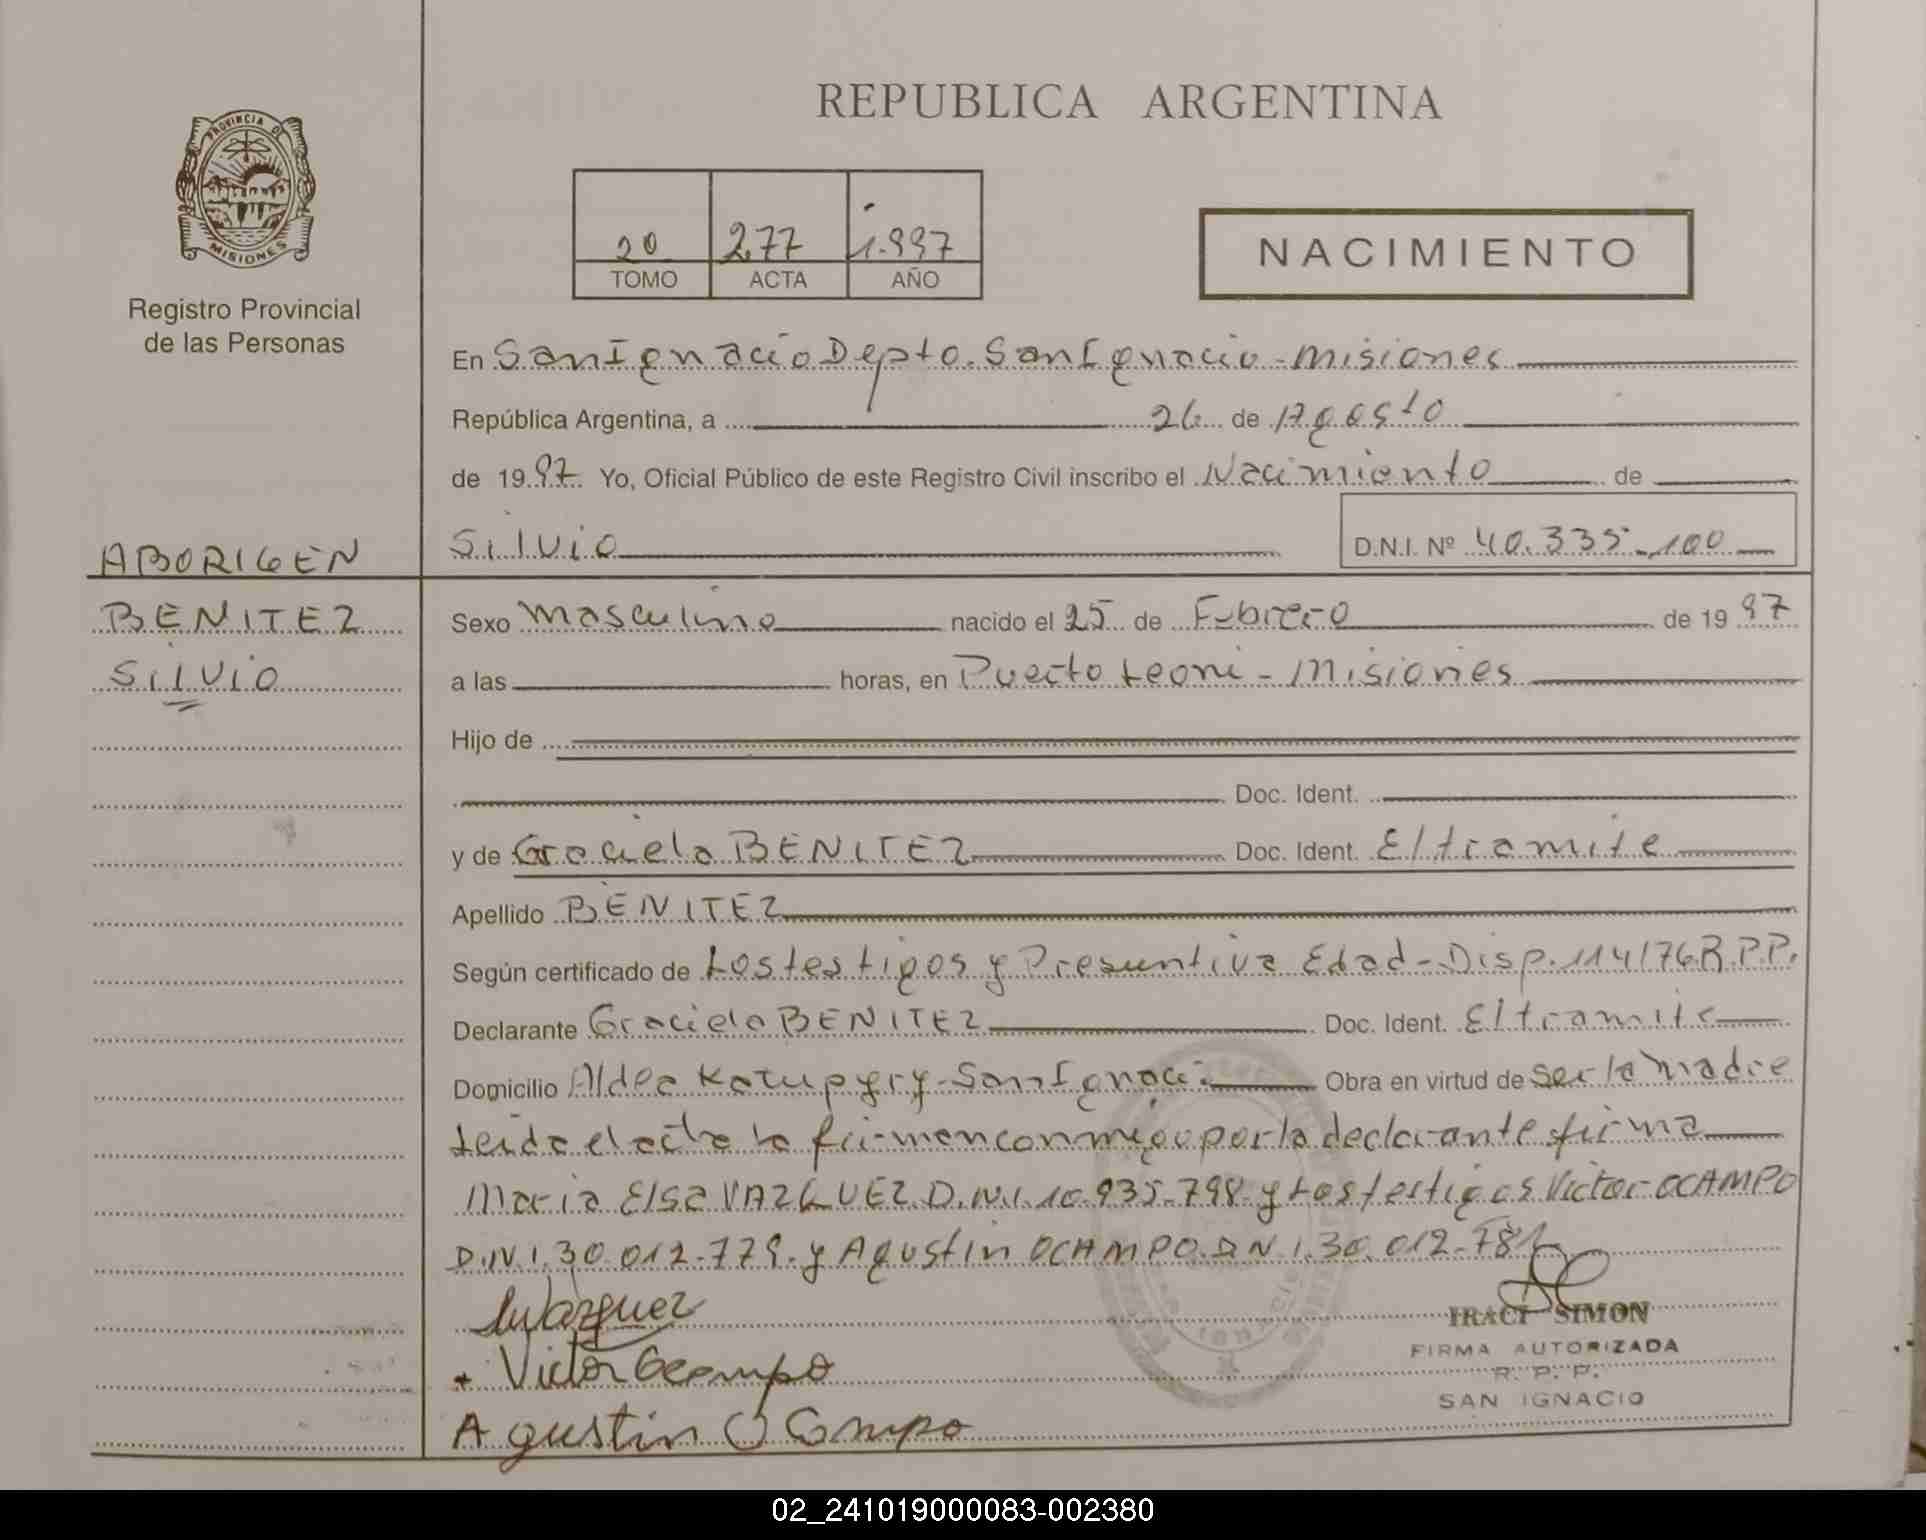 PROVINCIA DE
MISIONES
Registro Provincial
de las Personas
REPUBLICA ARGENTINA
20 277 1.997
TOMO ACTA AÑO
NACIMIENTO
En San Ignacio Depto. San Ignacio - Misiones
República Argentina, a 26 de Agosto
de 1997 Yo, Oficial Público de este Registro Civil inscribo el Nacimiento de
Silvio D.N.I. Nº 40.335.100
ABORIGEN
BENITEZ
Silvio
Sexo Masculino nacido el 25 de Febrero de 1997
a las horas, en Puerto Leoni - Misiones
Hijo de
Doc. Ident.
y de Graciela BENITEZ Doc. Ident. E/tramite
Apellido BENITEZ
Según certificado de Los testigos y Presuntiva Edad - Disp. 114/76 R.P.P.
Declarante Graciela BENITEZ Doc. Ident. E/tramite
Domicilio Aldea Katupyry - San Ignacio Obra en virtud de Ser la Madre
Leida el acta la firman conmigo por la declarante firma
Maria Elsa VAZQUEZ D.N.I. 10.935.798 y Los testigos Victor OCAMPO
D.N.I. 30.012.779. y Agustin OCAMPO. D.N.I. 30.012.781
Vazquez
Victor Ocampo
Agustin Ocampo
IRACI SIMON
FIRMA AUTORIZADA
R. P. P.
SAN IGNACIO
02_241019000083-002380